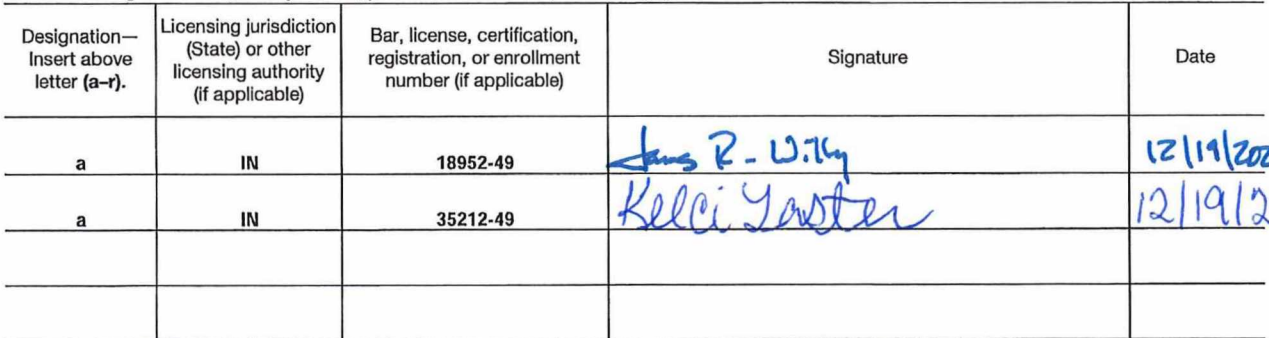 Designation—
Insert above
letter (a–r).
Licensing jurisdiction
(State) or other
licensing authority
(if applicable)
Bar, license, certification,
registration, or enrollment
number (if applicable)
Signature
Date
a IN 18952-49 James R. 12/19/202
a IN 35212-49 Kelci 12/19/2